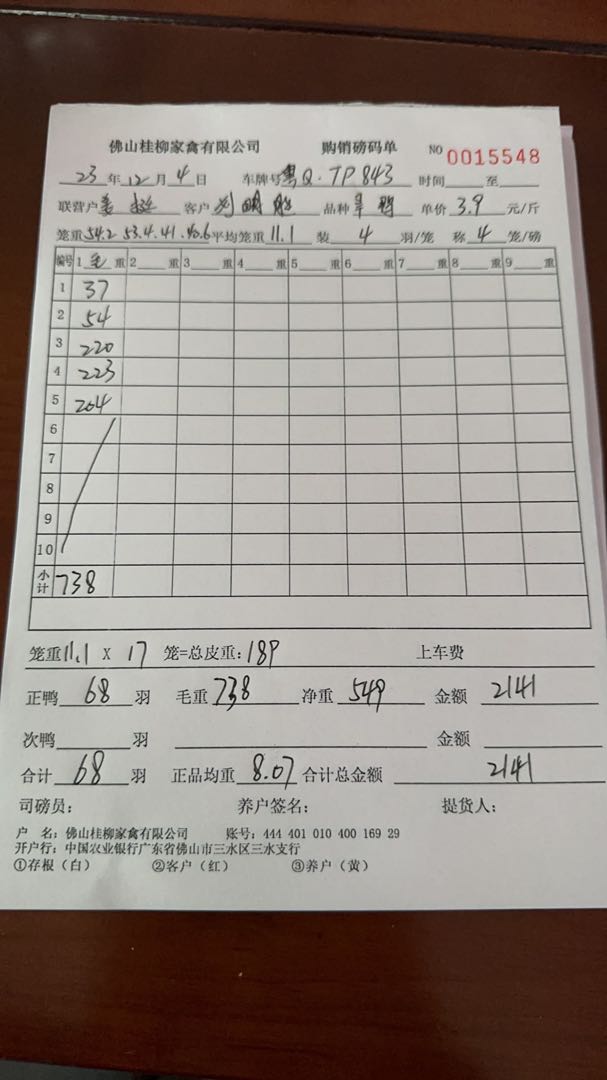 佛山桂柳家禽有限公司 购销磅码单 NO 0015548
23年12月4日 车牌号粤Q·TP843 时间 至
联营户 客户 刘 品种 单价3.9元/斤
笼重54.2 53.4.41.40.6平均笼重11.1 装4羽/笼 称4笼/磅
编号 1毛重 2 重 3 重 4 重 5 重 6 重 7 重 8 重 9 重
1 37
2 54
3 220
4 223
5 204
6
7
8
9
10
小计 738
笼重11.1 X 17 笼=总皮重:189 上车费
正鸭68羽 毛重738 净重549 金额2141
次鸭 羽 金额
合计68羽 正品均重8.07 合计总金额2141
司磅员: 养户签名: 提货人:
户 名: 佛山桂柳家禽有限公司 账号: 444 401 010 400 169 29
开户行: 中国农业银行广东省佛山市三水区三水支行
①存根(白) ②客户(红) ③养户(黄)